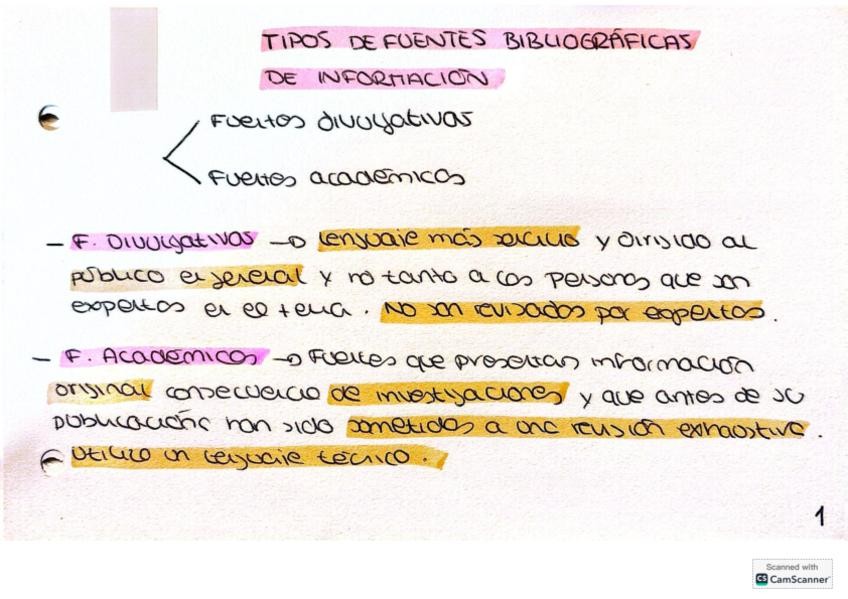 TIPOS DE FUENTES BIBLIOGRÁFICAS
DE INFORMACIÓN
Fuentes divulgativas
Fuentes académicas
- F. Divulgativas → lenguaje más sencillo y dirigido al
público en general y no tanto a las personas que son
expertas en el tema. No son revisadas por expertos.
- F. Académicas → Fuentes que presentan información
original consecuencia de investigaciones y que antes de su
publicación han sido sometidas a una revisión exhaustiva.
Utiliza un lenguaje técnico.
1
Scanned with
CS CamScanner